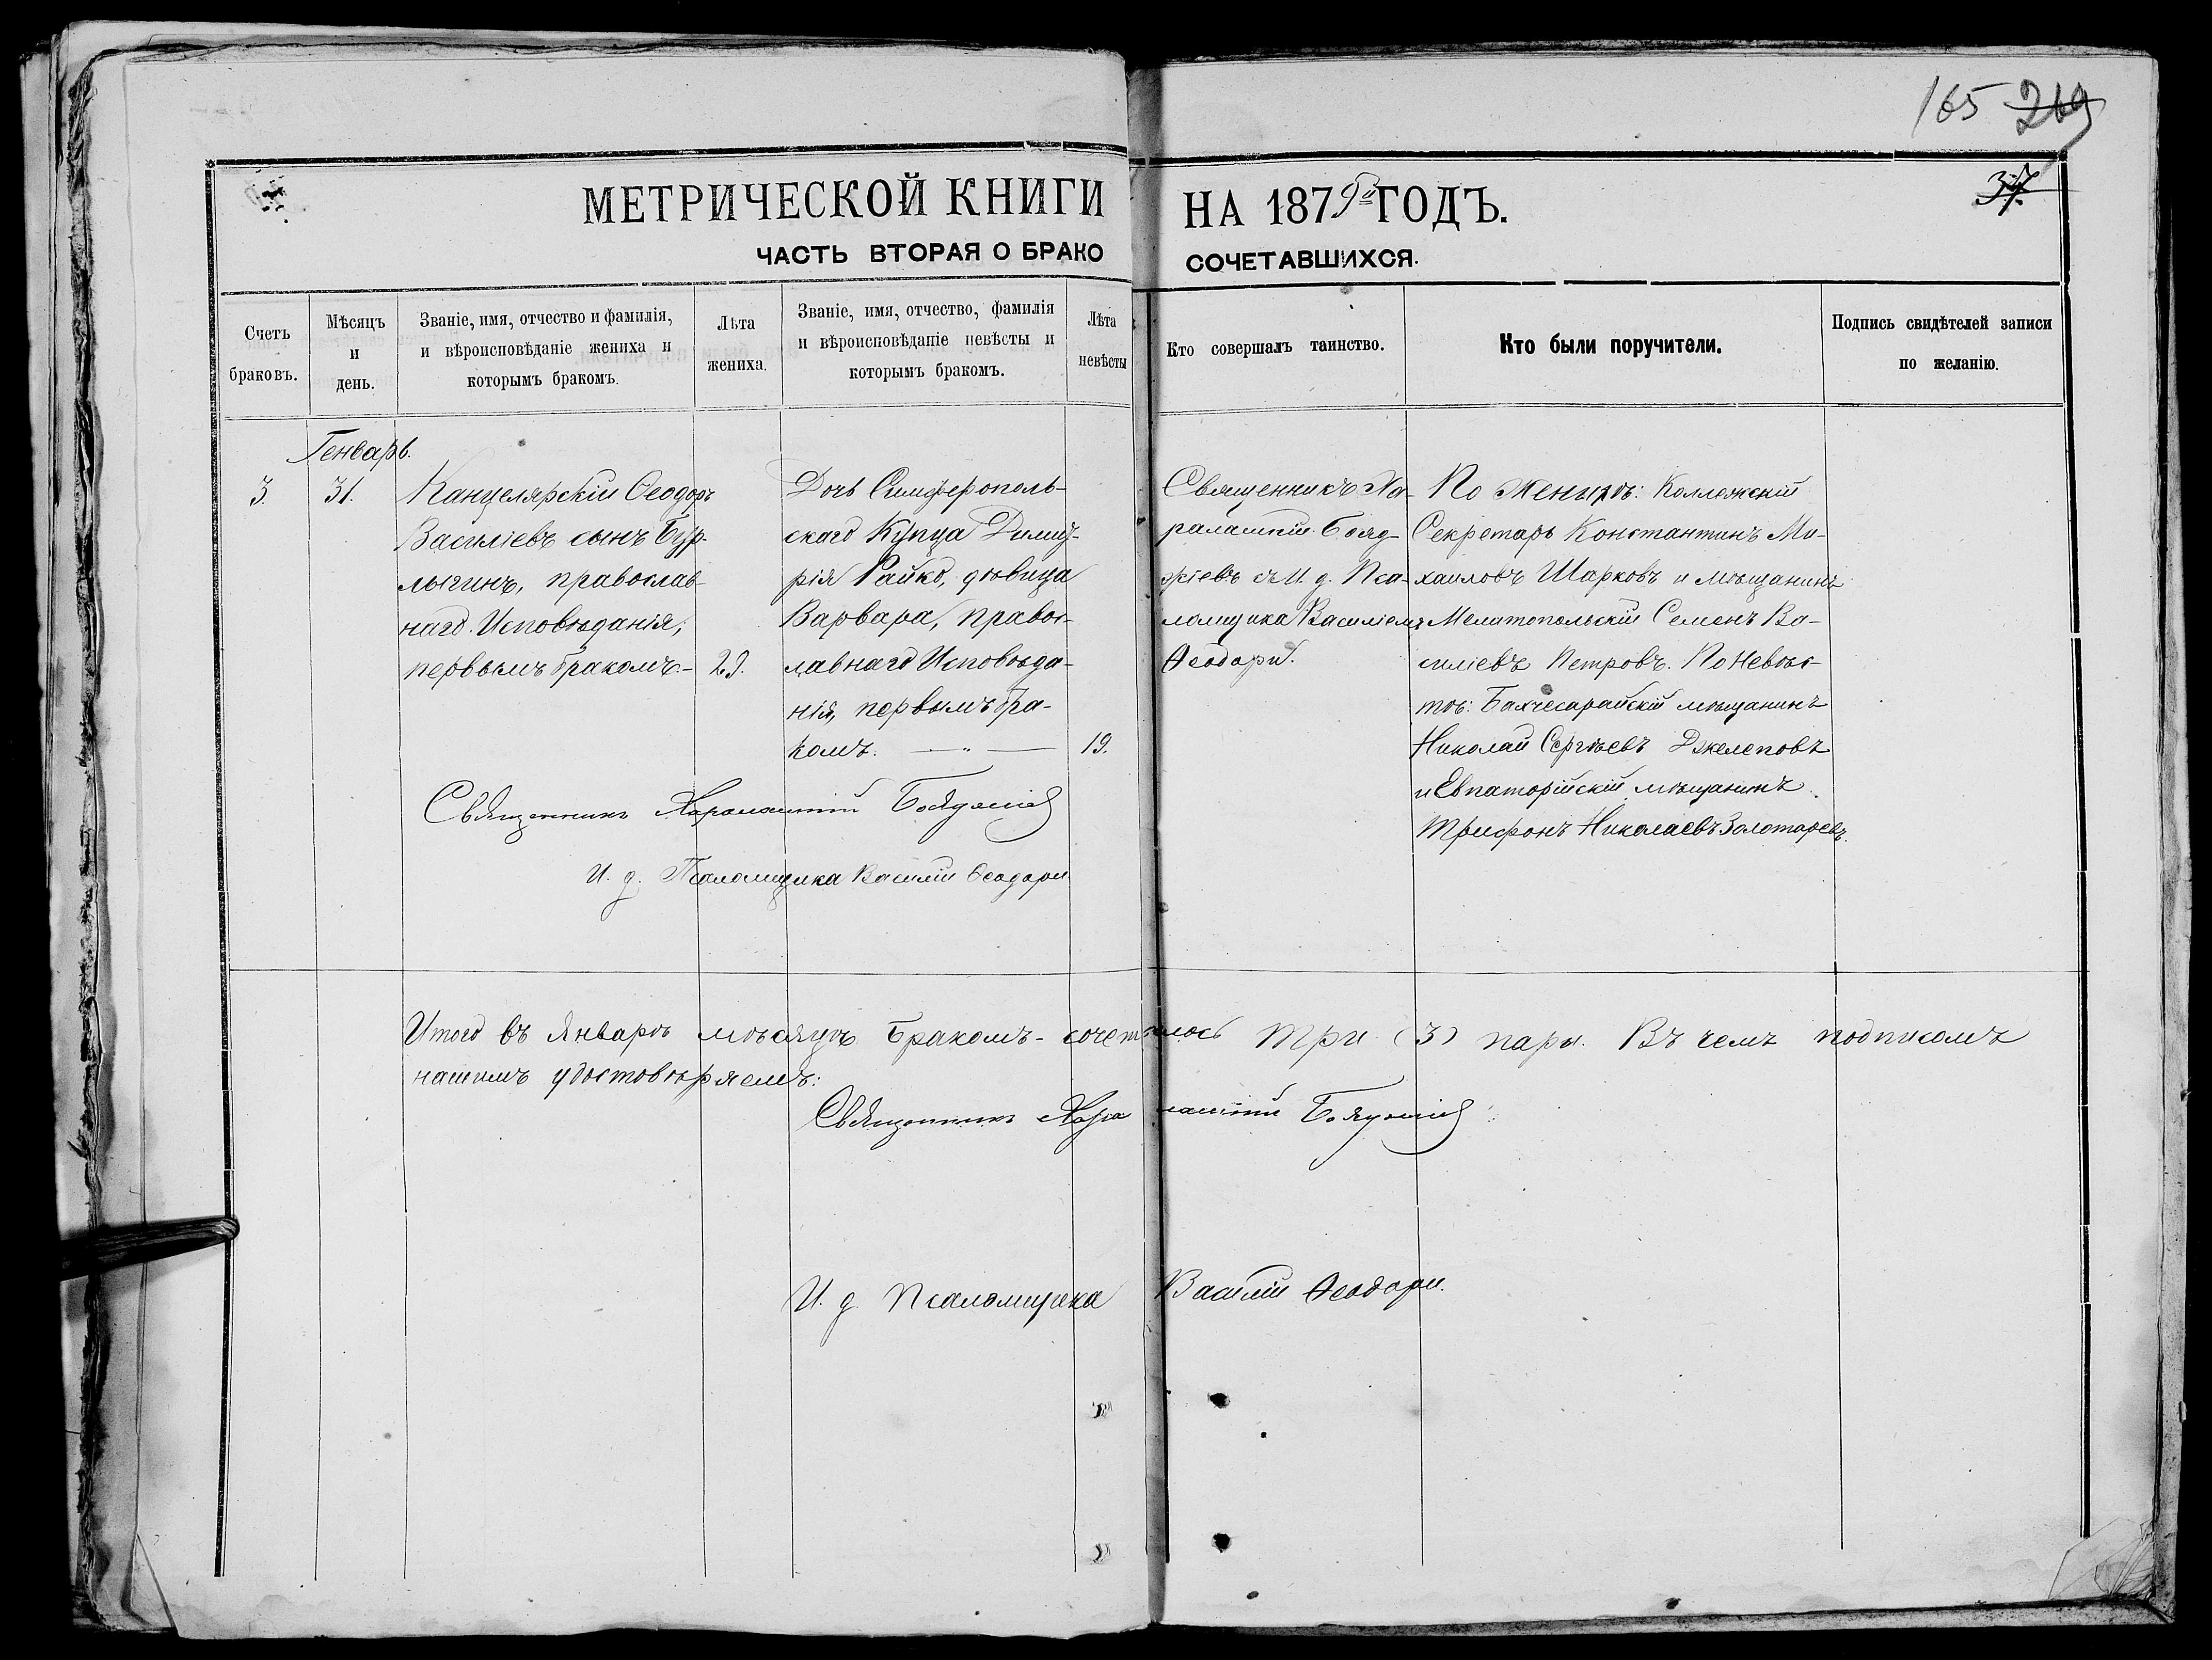 165 269
37.
МЕТРИЧЕСКОЙ КНИГИ НА 1879й ГОДЪ.
ЧАСТЬ ВТОРАЯ О БРАКОСОЧЕТАВШИХСЯ.
Счетъ
браковъ.
Мѣсяцъ
и
день.
Званіе, имя, отчество и фамилія,
и вѣроисповѣданіе жениха и
которымъ бракомъ.
Лѣта
жениха.
Званіе, имя, отчество, фамилія
и вѣроисповѣданіе невѣсты и
которымъ бракомъ.
Лѣта
невѣсты
Кто совершалъ таинство.
Кто были поручители.
Подпись свидѣтелей записи
по желанію.
Генварь.
3.
31.
Канцелярскій Ѳеодоръ
Василіевъ сынъ Бур-
лыгинъ, православ-
наго Исповѣданія,
первымъ бракомъ.-
29.
Дочь Симферополь-
скаго Купца Димит-
рія Райко, дѣвица
Варвара, правос-
лавнаго Исповѣда-
нія, первымъ бра-
комъ. — „ —
19.
Священникъ Ха-
ралампій Бояд-
жіевъ съ И. д. Пса-
ломщика Василіемъ
Ѳеодори.
По Женихѣ: Коллежскій
Секретарь Константинъ Ми-
хаиловъ Шарковъ и мѣщанинъ
Мелитопольскій Семенъ Ва-
силіевъ Петровъ. По Невѣс-
тѣ: Бахчесарайскій мѣщанинъ
Николай Сергѣевъ Джелеповъ
и Евпаторійскій мѣщанинъ
Трифонъ Николаевъ Золотаревъ.
Священникъ Харалампій Бояджіевъ
И. д. Псаломщика Василій Ѳеодори
Итого въ Январѣ мѣсяцѣ Бракомъ-сочеталось три (3) пары. Въ чемъ подписомъ
нашимъ удостовѣряемъ:
Священникъ Харалампій Бояджіевъ
И. д. Псаломщика Василій Ѳеодори.